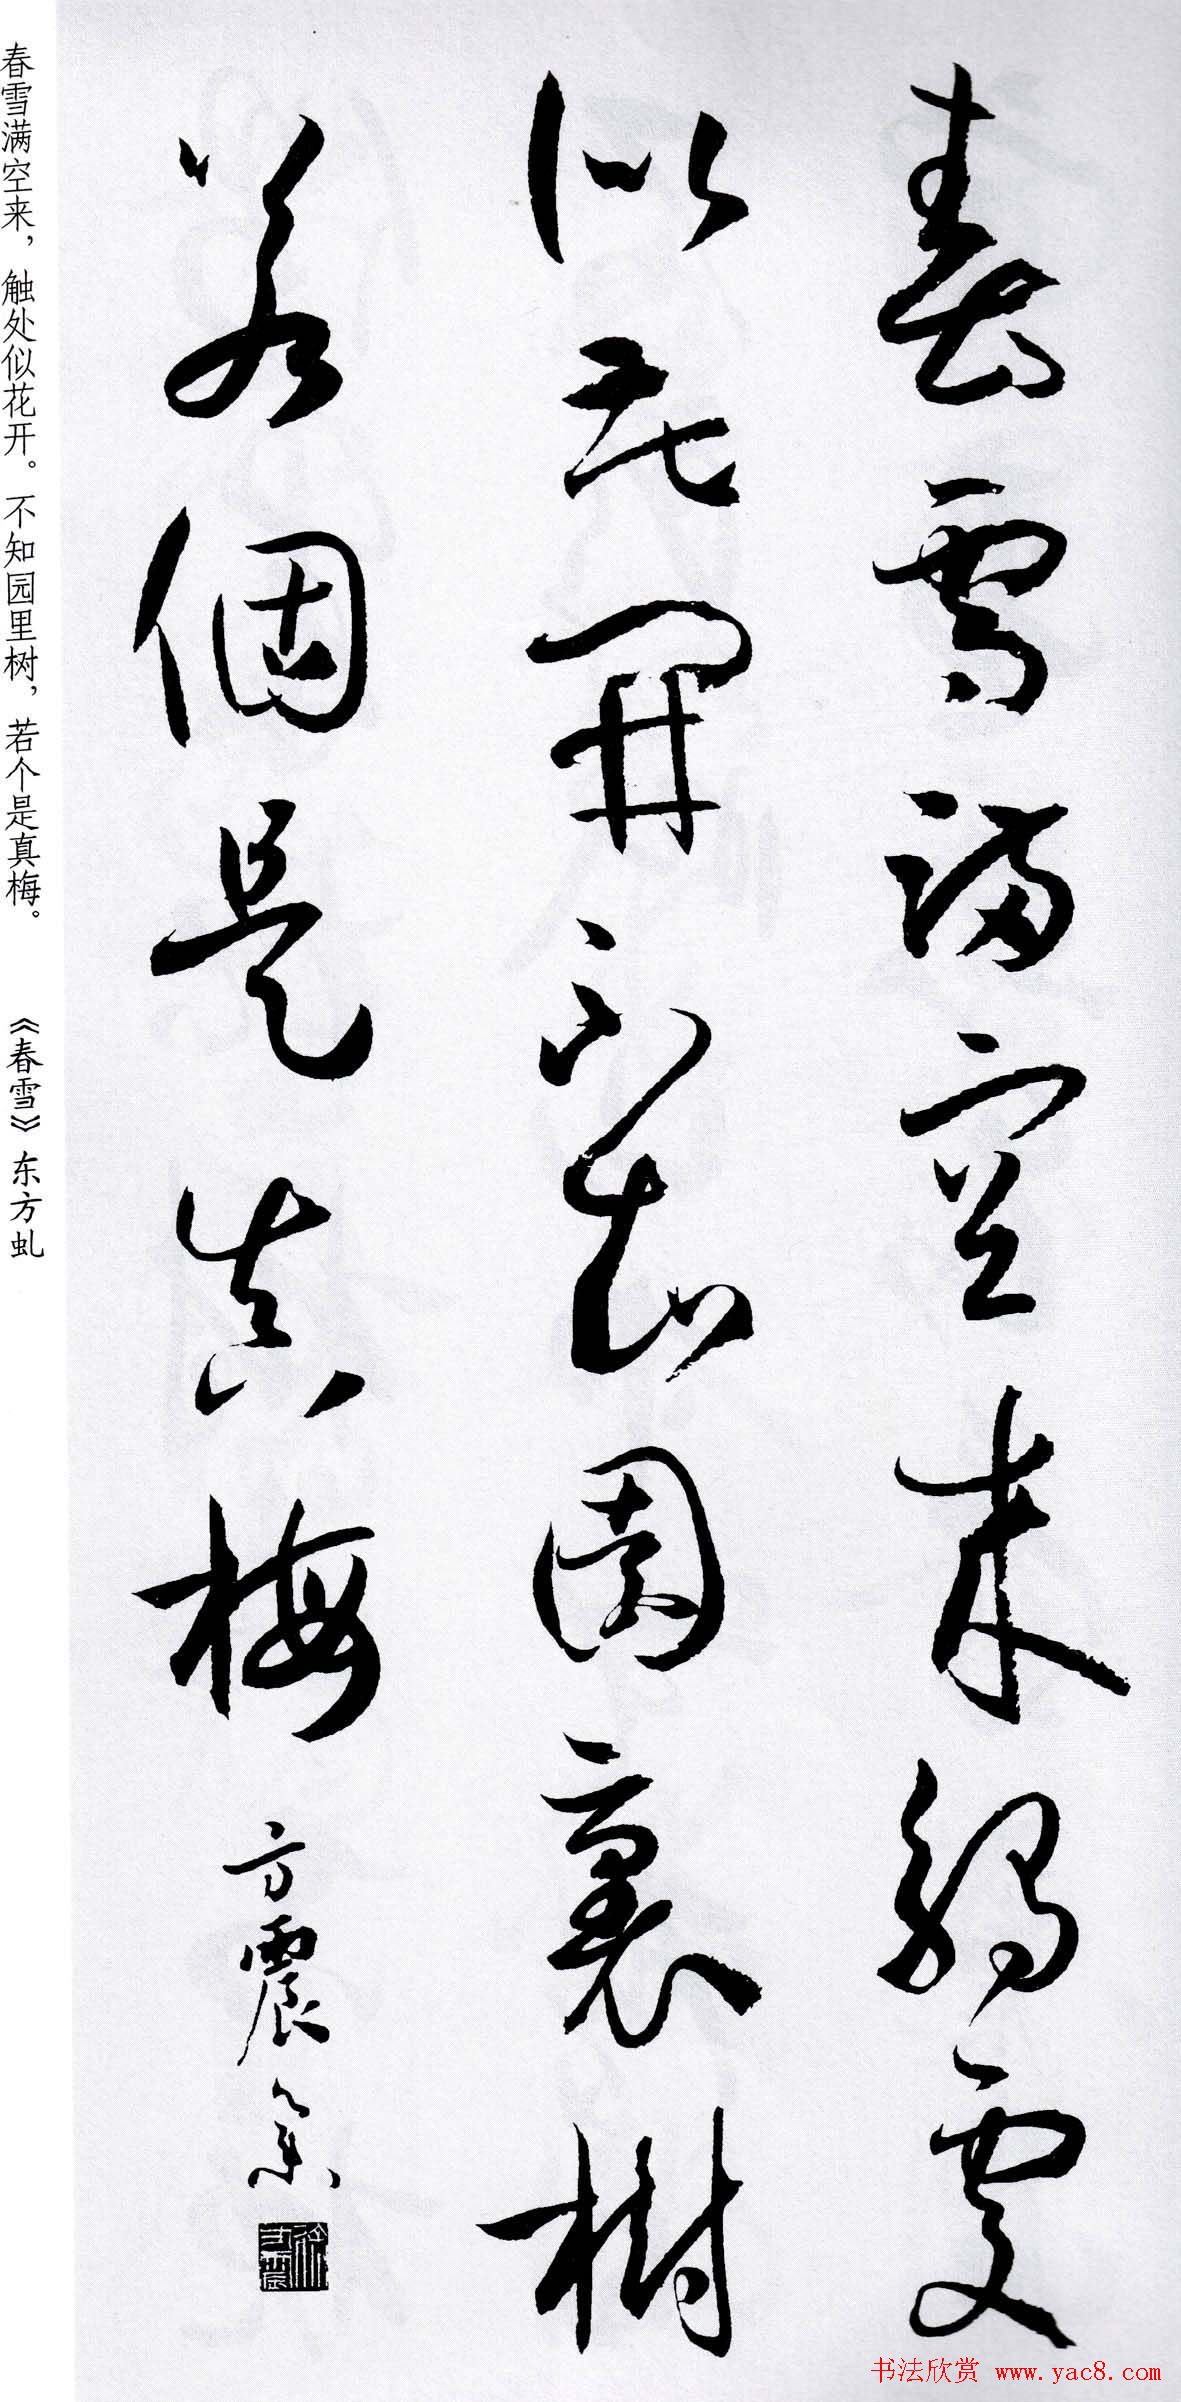 春雪滿空来觸處
似花開不知園裏樹
若個是真梅
方震篆
春雪满空来，触处似花开。不知园里树，若个是真梅。 《春雪》东方虬
书法欣赏 www.yac8.com